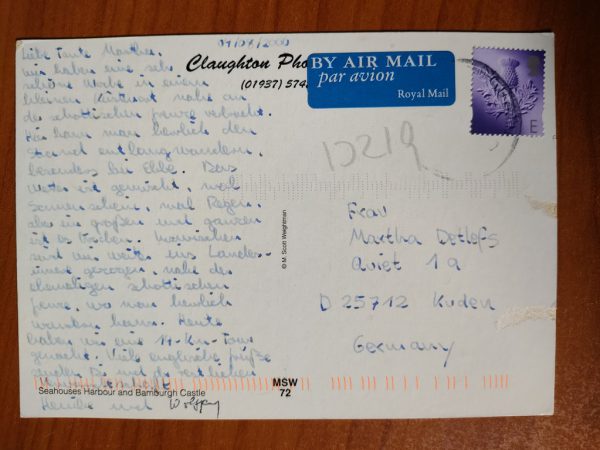 14/07/2000
Liebe Tante Martha,
wir haben eine sehr
schöne Woche in einem
kleinen Küstenort nahe an
der schottischen Grenze verbracht.
Hier kann man herrlich den
Strand entlang wandern,
besonders bei Ebbe. Das
Wetter ist gemischt, mal
Sonnenschein, mal Regen,
aber im großen und ganzen
ist es trocken. Inzwischen
sind wir weiter ins Landes-
innere gezogen, nahe der
ehemaligen schottischen
Grenze, wo man herrlich
wandern kann. Heute
haben wir eine 11-Km-Tour
gemacht. Viele englische Grüße
und
Wolfgang
Claughton Pho
(01937) 574
BY AIR MAIL
par avion
Royal Mail
E
D219
© M. Scott Weightman
Frau
Martha Detlefs
Quiet 1a
D 25712 Kuden
Germany
Seahouses Harbour and Bamburgh Castle
MSW
72